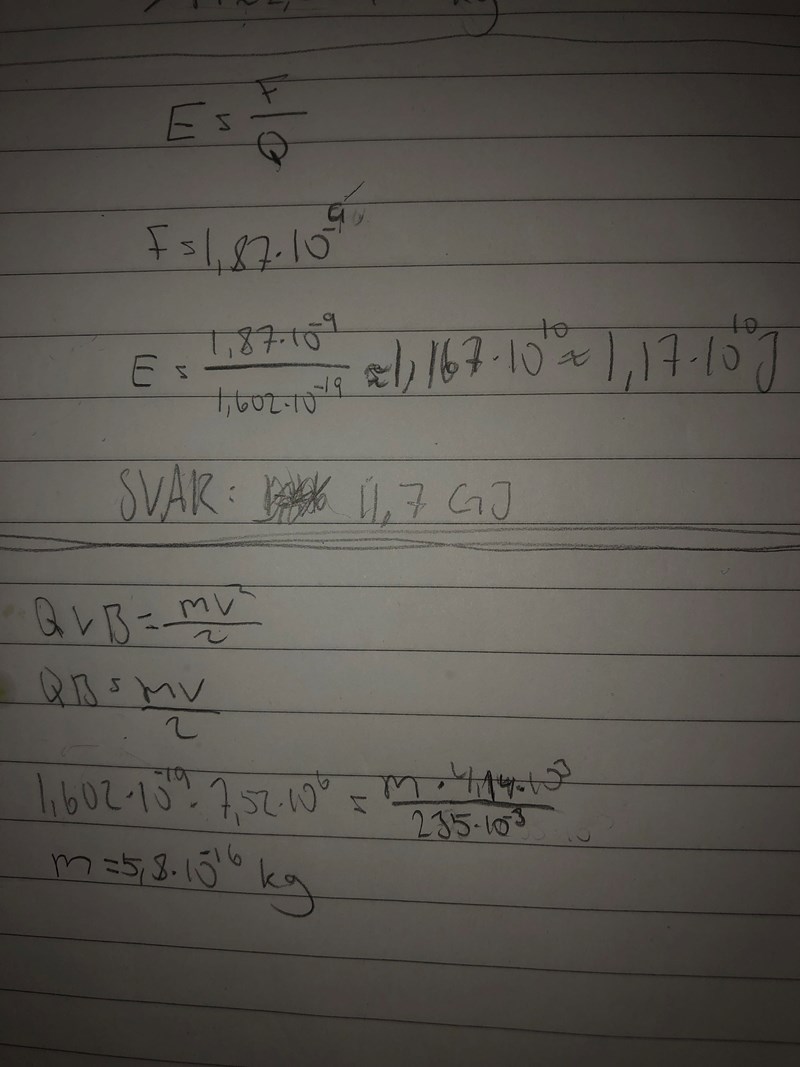 E = F/Q
F = 1,87·10^-9
E = 1,87·10^-9 / 1,602·10^-19 ≈ 1,167·10^10 ≈ 1,17·10^10 J
SVAR: 11,7 GJ
QVB = mv²/r
QB = mv/r
1,602·10^-19 · 7,52·10^6 = m · 4,14·10^3 / 235·10^-3
m = 5,8·10^-16 kg